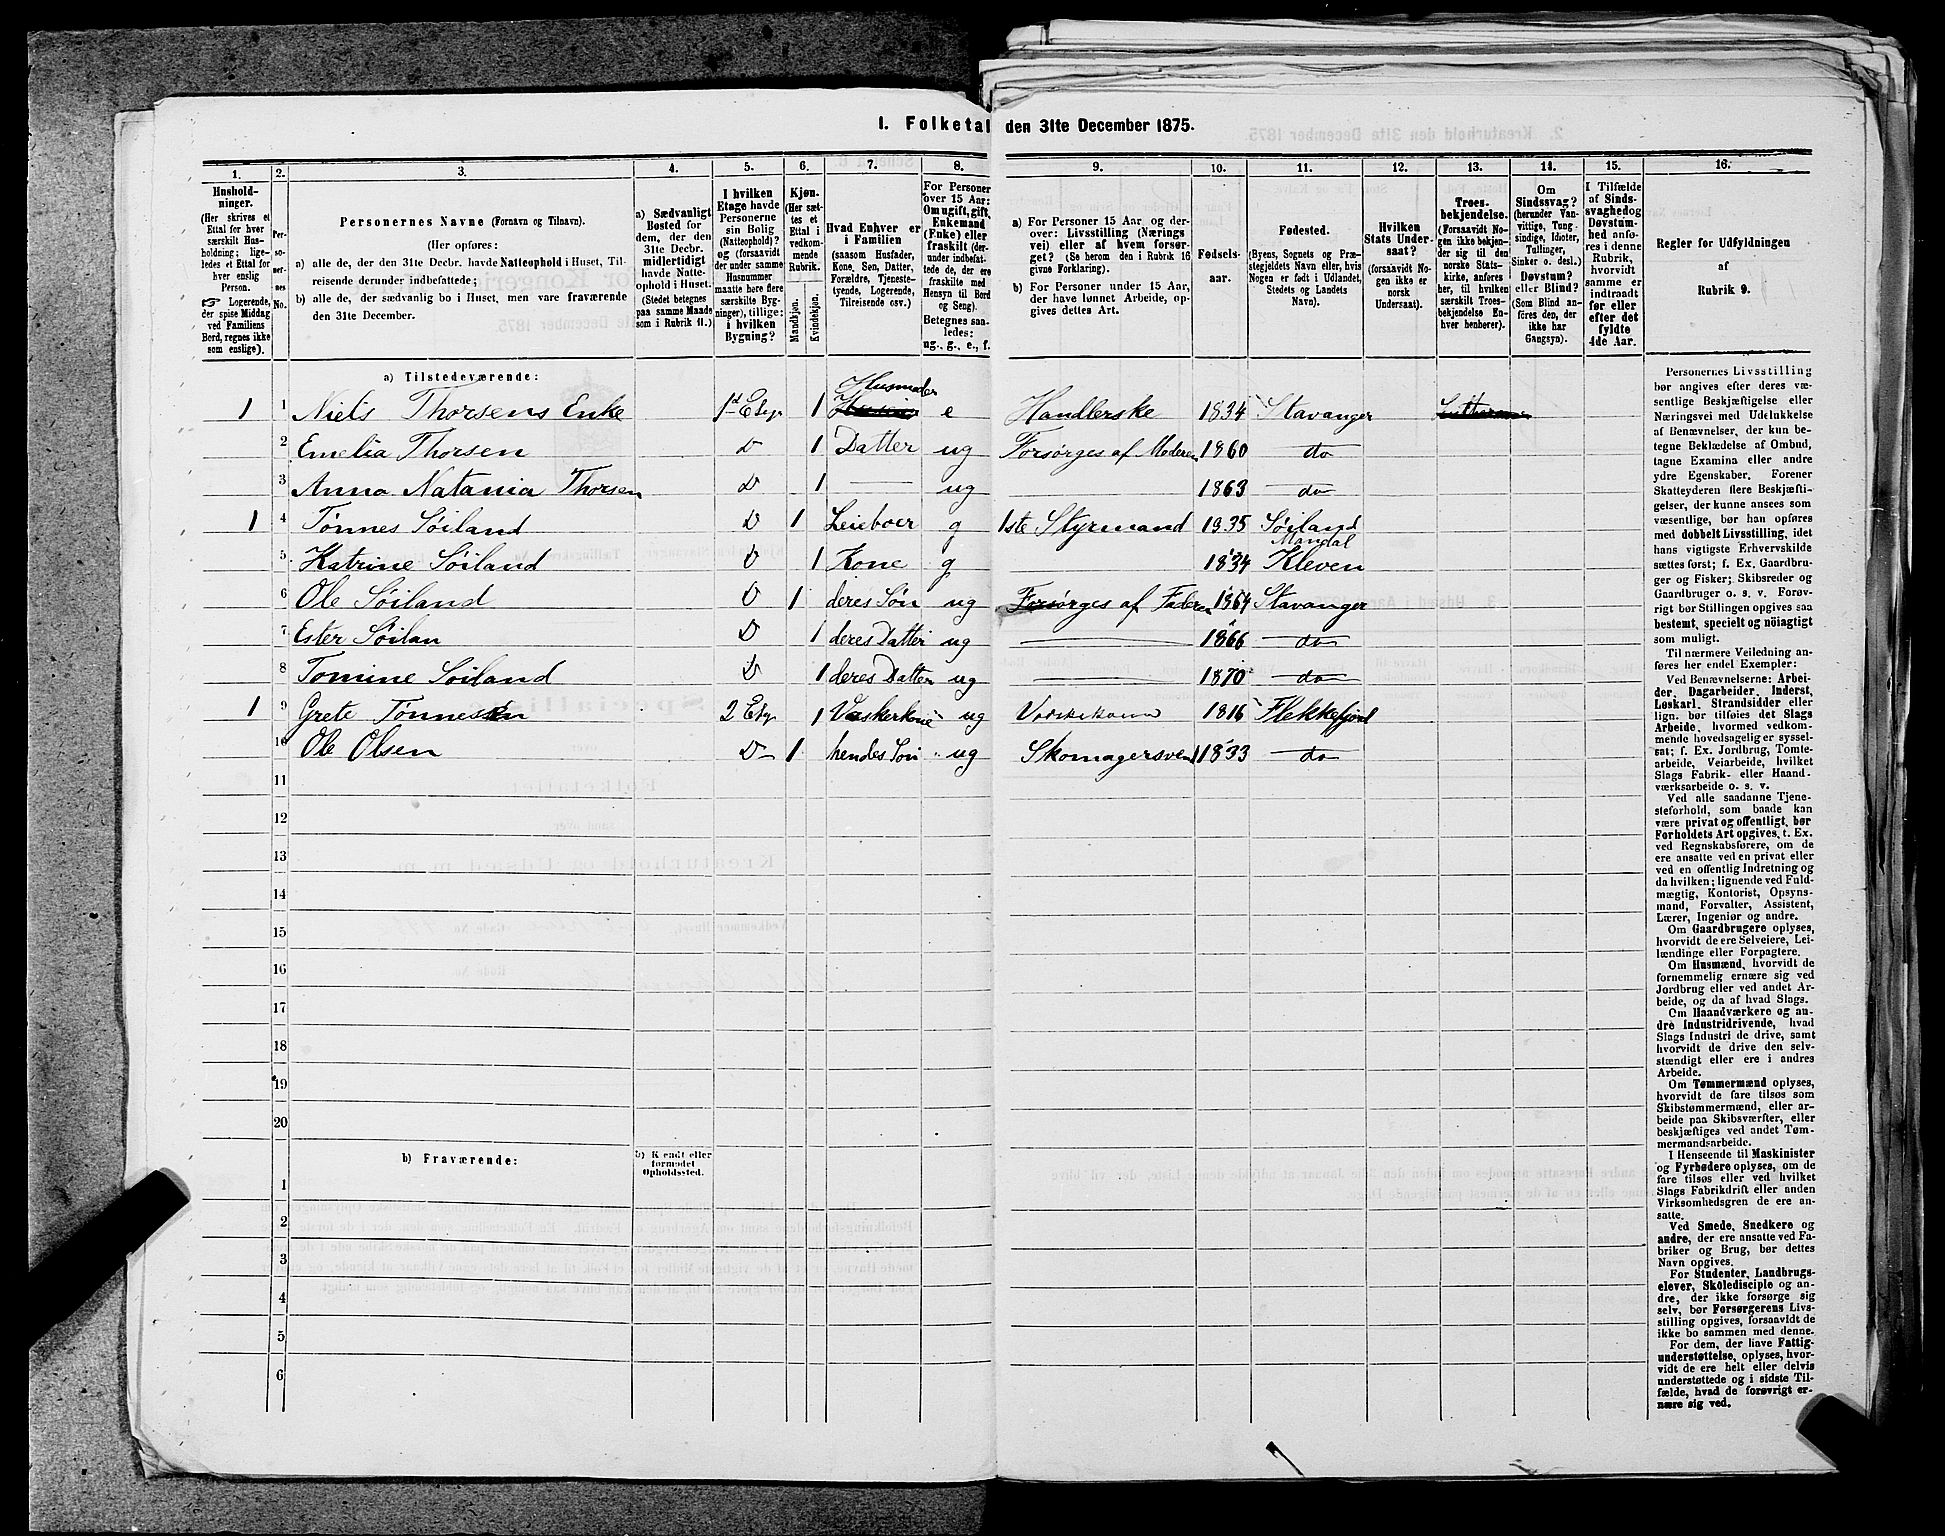 1. Folketal den 31te December 1875.
1. 2. 3. 4. 5. 6. 7. 8. 9. 10. 11. 12. 13. 14. 15. 16.
Husholdninger.
(Her skrives et
Ettal for hver
særskilt Husholdning;
ligeledes et Ettal for
hver enslig
Person.
☞ Logerende,
der spise Middag
ved Familiens
Bord, regnes ikke
som enslige).
Personernes No.
Personernes Navne (Fornavn og Tilnavn).
(Her opføres:
a) alle de, der den 31te Decbr. havde Natteophold i Huset, Tilreisende derunder indbefattede;
b) alle de, der sædvanlig bo i Huset, men vare fraværende
den 31te December.
a) Sædvanligt
Bosted for
dem, der den
31te Decbr.
midlertidigt
havde Natteophold i Huset.
(Stedet betegnes
paa samme Maade
som i Rubrik 11.)
I hvilken
Etage havde
Personerne
sin Bolig
(Natteophold)?
og (forsaavidt
der under samme
Husnummer
maatte høre flere
særskilte Bygninger), tillige:
i hvilken
Bygning?
Kjøn.
(Her sættes et
Ettal i
vedkommende
Rubrik.
Mandkjøn.
Kvindekjøn.
Hvad Enhver er
i Familien
(saasom Husfader,
Kone, Søn, Datter,
Forældre, Tjenestetyende, Logerende,
Tilreisende osv.)
For Personer
over 15 Aar:
Om ugift, gift,
Enkemand
(Enke) eller
fraskilt (derunder indbefattede, de, der ere
fraskilte med
Hensyn til Bord
og Seng).
Betegnes saaledes:
ug., g., e., f.
a) For Personer 15 Aar og derover: Livsstilling (Næringsvei) eller af hvem forsørget? (Se herom den i Rubrik 16
givne Forklaring).
b) For Personer under 15 Aar,
der have lønnet Arbeide, opgives dettes Art.
Fødselsaar.
Fødested.
(Byens, Sognets og Præstegjeldets Navn eller, hvis
Nogen er født i Udlandet,
Stedets og Landets
Navn).
Hvilken
Stats Undersaat?
(forsaavidt Nogen ikke er
norsk
Undersaat).
Troesbekjendelse.
(Forsaavidt Nogen ikke bekjender sig til den
norske Statskirke, anføres
her, til hvilken
særskilt Troesbekjendelse Enhver henhører).
Om
Sindssvag?
(herunder Vanvittige, Tungsindige, Idioter,
Tullinger,
Sinker o. desl.).
Døvstum?
eller Blind?
(Som Blind anføres den, der
ikke har
Gangsyn).
I Tilfælde
af Sindssvaghed og
Døvstumhed anføres i denne
Rubrik,
hvorvidt
samme er
indtraadt
før eller
efter det
fyldte
4de Aar.
Regler for Udfyldningen
af
Rubrik 9.
a) Tilstedeværende:
1 1 Niels Thorsens Enke 1st Etge 1 Husmoder e Handlerske 1834 Stavanger
2 Emelia Thorsen D 1 Datter ug Forsørges af Moderen 1860 do
3 Anna Natania Thorsen D 1 — ug 1863 do
1 4 Tønnes Søiland D 1 Leieboer g 1ste Styrmand 1835 Søiland Mandal
5 Katrine Søiland D 1 Kone g 1834 Kleven
6 Ole Søiland D 1 deres Søn ug Forsørges af Faderen 1864 Stavanger
7 Ester Søilan D 1 deres Datter ug — 1866 do
8 Tomine Søiland D 1 deres Datter ug — 1870 do
1 9 Grete Tønnesen 2 Etge 1 Vaskerkone ug 1816 Flekkefjord
10 Ole Olsen D 1 hendes Søn ug Skomagersvend 1833 do
11
12
13
14
15
16
17
18
19
20
b) Fraværende:
b) Kjendt eller
formodet
Opholdssted.
1
2
3
4
5
6
Personernes Livsstilling
bør angives efter deres væsentlige Beskjæftigelse eller
Næringsvei med Udelukkelse
af Benævnelser, der kun betegne Beklædelse af Ombud,
tagne Examina eller andre
ydre Egenskaber. Forener
Skatteyderen flere Beskjæftigelser, der kunne ansees som
væsentlige, bør han opføres
med dobbelt Livsstilling, idet
hans vigtigste Erhvervskilde
sættes først; f. Ex. Gaardbruger og Fisker; Skibsreder og
Gaardbruger o. s. v. Forøvrigt bør Stillingen opgives saa
bestemt, specielt og nöiagtigt
som muligt.
Til nærmere Veiledning anføres her endel Exempler:
Ved Benævnelserne: Arbeider, Dagarbeider, Inderst,
Løskarl, Strandsidder eller
lign. bør tilføies det Slags
Arbeide, hvormed vedkommende hovedsagelig er sysselsat; f. Ex. Jordbrug, Tomtearbeide, Veiarbeide, hvilket
Slags Fabrik- eller Haandværksarbeide o. s. v.
Ved alle saadanne Tjenesteforhold, som baade kan
være privat og offentligt, bør
Forholdets Art opgives, t. Ex.
ved Regnskabsførere, om de
ere ansatte ved en privat eller
ved en offentlig Indretning og
da hvilken; lignende ved Fuldmægtig, Kontorist, Opsynsmand, Forvalter, Assistent,
Lærer, Ingeniør og andre.
Om Gaardbrugere oplyses,
hvorvidt de ere Selveiere, Leilændinge eller Forpagtere.
Om Husmænd, hvorvidt de
fornemmelig ernære sig ved
Jordbrug eller ved andet Arbeide, og da af hvad Slags.
Om Haandværkere og andre Industridrivende, hvad
Slags Industri de drive, samt
hvorvidt de drive den selvstændigt eller ere i andres
Arbeide.
Om Tømmermænd oplyses,
hvorvidt de fare tilsøs som
Skibstømmermænd, eller arbeide paa Skibsværfter, eller
beskjæftiges ved andet Tømmermandsarbeide.
I Henseende til Maskinister
og Fyrbødere oplyses, om de
fare tilsøs eller ved hvilket
Slags Fabrikdrift eller anden
Virksomhedsgren de ere ansatte.
Ved Smede, Snedkere og
andre, der ere ansatte ved Fabriker og Brug, bør dettes
Navn opgives.
For Studenter, Landbrugselever, Skoledisciple og andre, der ikke forsørge sig
selv, bør Forsørgerens Livsstilling opgives, forsaavidt de
ikke bo sammen med denne.
For dem, der have Fattigunderstøttelse, oplyses, hvorvidt de ere helt eller delvis
understøttede og i sidste Tilfælde, hvad de forøvrigt ernære sig ved.